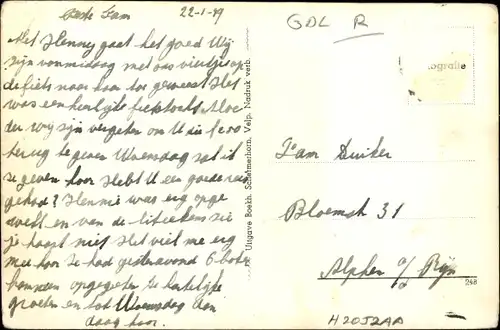 Beste Fam 22-1-49
Met Henny gaat het goed Wij
zijn vanmiddag met ons viertjes op
de fiets naar haar toe geweest Het
was een heerlijke fietstocht Moe
der wij zijn vergeten om U die f
terug te geven Woensdag zal ik
ze geven hoor Hebt U een goede reis
gehad? Hennie was erg opge
wekt en van de zie
je haast niet Het viel me erg
mee hoor Ze had gisteravond 6 boter
hammen opgegeten Ze hartelijke
groeten en tot Woensdag dan
daag hoor.
Uitgave Boekh. Schiemerhorn. Velp. Nadruk verb.
GDL R
tografie
Fam Duiker
Bloemstr 31
Alphen a/d Rijn
248
H2052AA